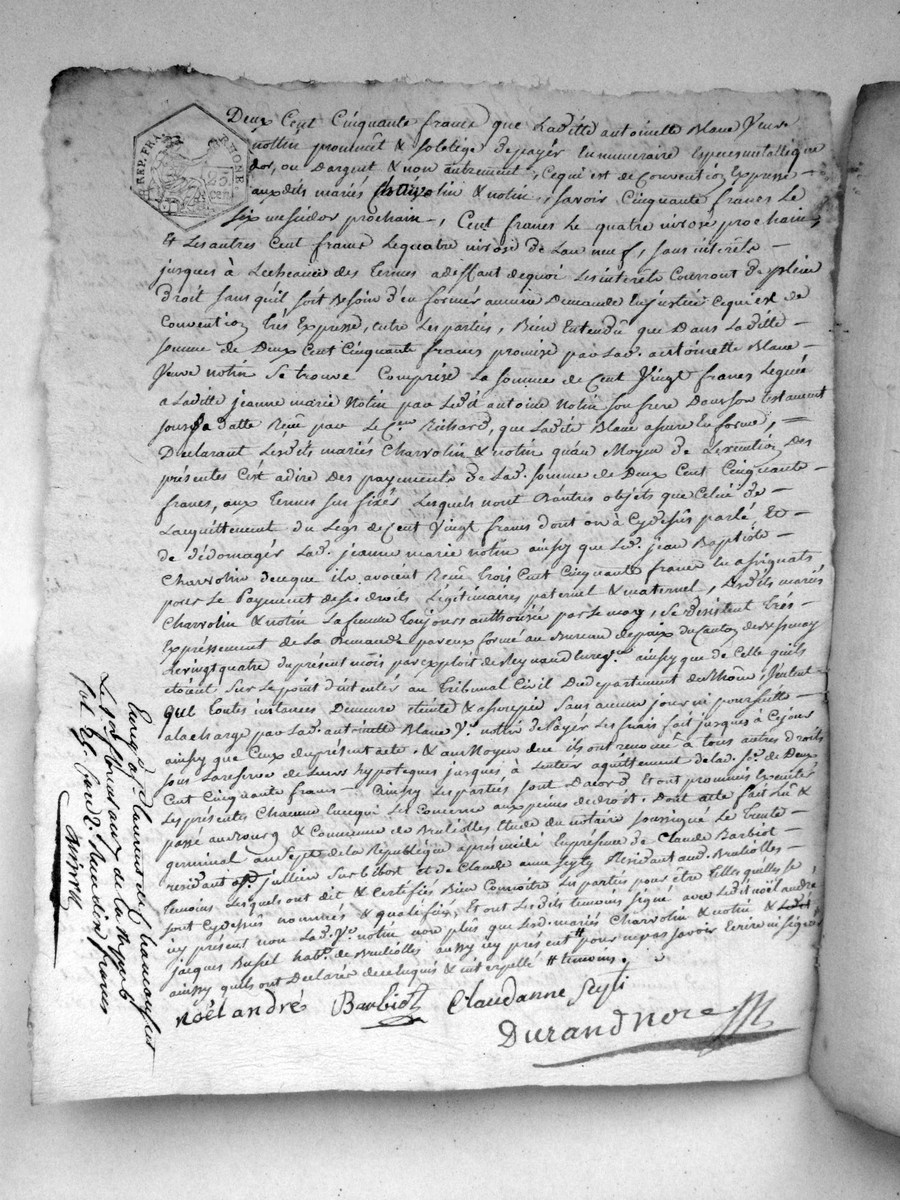 REP. FRA.
RHONE
25
CEN
Deux Cent Cinquante francs que Laditte antoinette Blanc Veuve
nottin promet & soblige depayér En numeraire Especes metallique
dor, ou Dargent & non autrement, Cequi est de Convention Expresse
auxdits mariés Charvolin & notin, savoir Cinquante francs Le
Six messidor prochain, Cent francs Le quatre nivose prochain,
Et Les autres Cent francs Lequatre nivose de Lan neuf, sans interets
jusques à Lecheance des termes adeffaut dequoi Les interets Courront de plein
droit sans quil soit Besoin d'en formér aucune Demande En justice Cequi est de
Convention trés Expresse, entre Les parties, Bien Entendû que Dans Laditte
somme de Deux Cent Cinquante francs promise par Lad. antoinette Blanc
Veuve notin se trouve Comprise La somme de Cent Vingt francs Leguée
a Laditte jeanne marie Notin par Led. antoine Notin son frere Dans son testament
sous sa datte Reçu par Le Cen Richard, que Ladite Blanc assure En forme,
Declarant Lesdits mariés Charvolin & notin quau Moyen de Lexecution Des
présentes C'est adire Des payements de Lad. somme de Deux Cent Cinquante
francs, aux termes sus fixés Lesquels nont Dautres objets que Celui de
Lacquittement du Legs de Cent Vingt francs dont on à Cydessus parlé Et
de dédomagér Lad. jeanne marie notin ainsy que Led. jean Baptiste
Charvolin deceque ils avoient Reçu trois Cent Cinquante francs En assignats
pour Le Payement desdits droits Légitimaires paternel & maternel, Lesdits mariés
Charvolin & notin La femme toujours authorisée par Le mary, se desistent trés
Expressement de La Demande par eux formé au Bureau de paix du Canton de
Levingt quatre du présent mois par exploit de ainsy que de Celle quils
etoient sur Le point d'intentér au Tribunal Civil Du departement du Rhône, Veulent
que toutes instances Demeure eteinte & assoupie Sans aucun jour ni poursuitte
alacharge par Lad. antoinette Blanc Ve. notin de Payér Les frais fait jusques à Cejour
ainsy que Ceux du présent acte & au Moyen dece ils ont renoncé à tous autres droits
sous La reserve de Leurs hypoteques jusques à Lentier aquittement delad. se. de Deux
Cent Cinquante francs Ainsy Les parties sont Dacord Et ont promis Executér
Les présentes Chacune Encequi Les Concerne aux peines de droit. Dont acte fait Lû &
passé au Bourg & Commune de Brulliolles Etude du notaire soussigné Le trente
germinal an Sept de La République après midi En présence de Claude Barbiot
residant a St. jullien sur bibost Et de Claude anne seyty Residant aud. Brulliolles
temoins Lesquels ont dit & certifiés Bien Connoitre Les parties pour être telles quelles se
sont Cydessus nommées & qualifiées, Et ont Lesdits temoins signé avec Ledit noël andré
icy présent non Lad. Ve. notin non plus que Lesd. mariés Charvolin & notin &
jacques Bussel habt. de Brulliolles aussy icy présent # pour ne pas savoir Ecrire ni signér
ainsy quils ont Declarés de cerequis & interpellé # temoins.
noël andré Barbiot Claudanne Seyti
Durand nore
Enreg. a
Le
fol. 26.